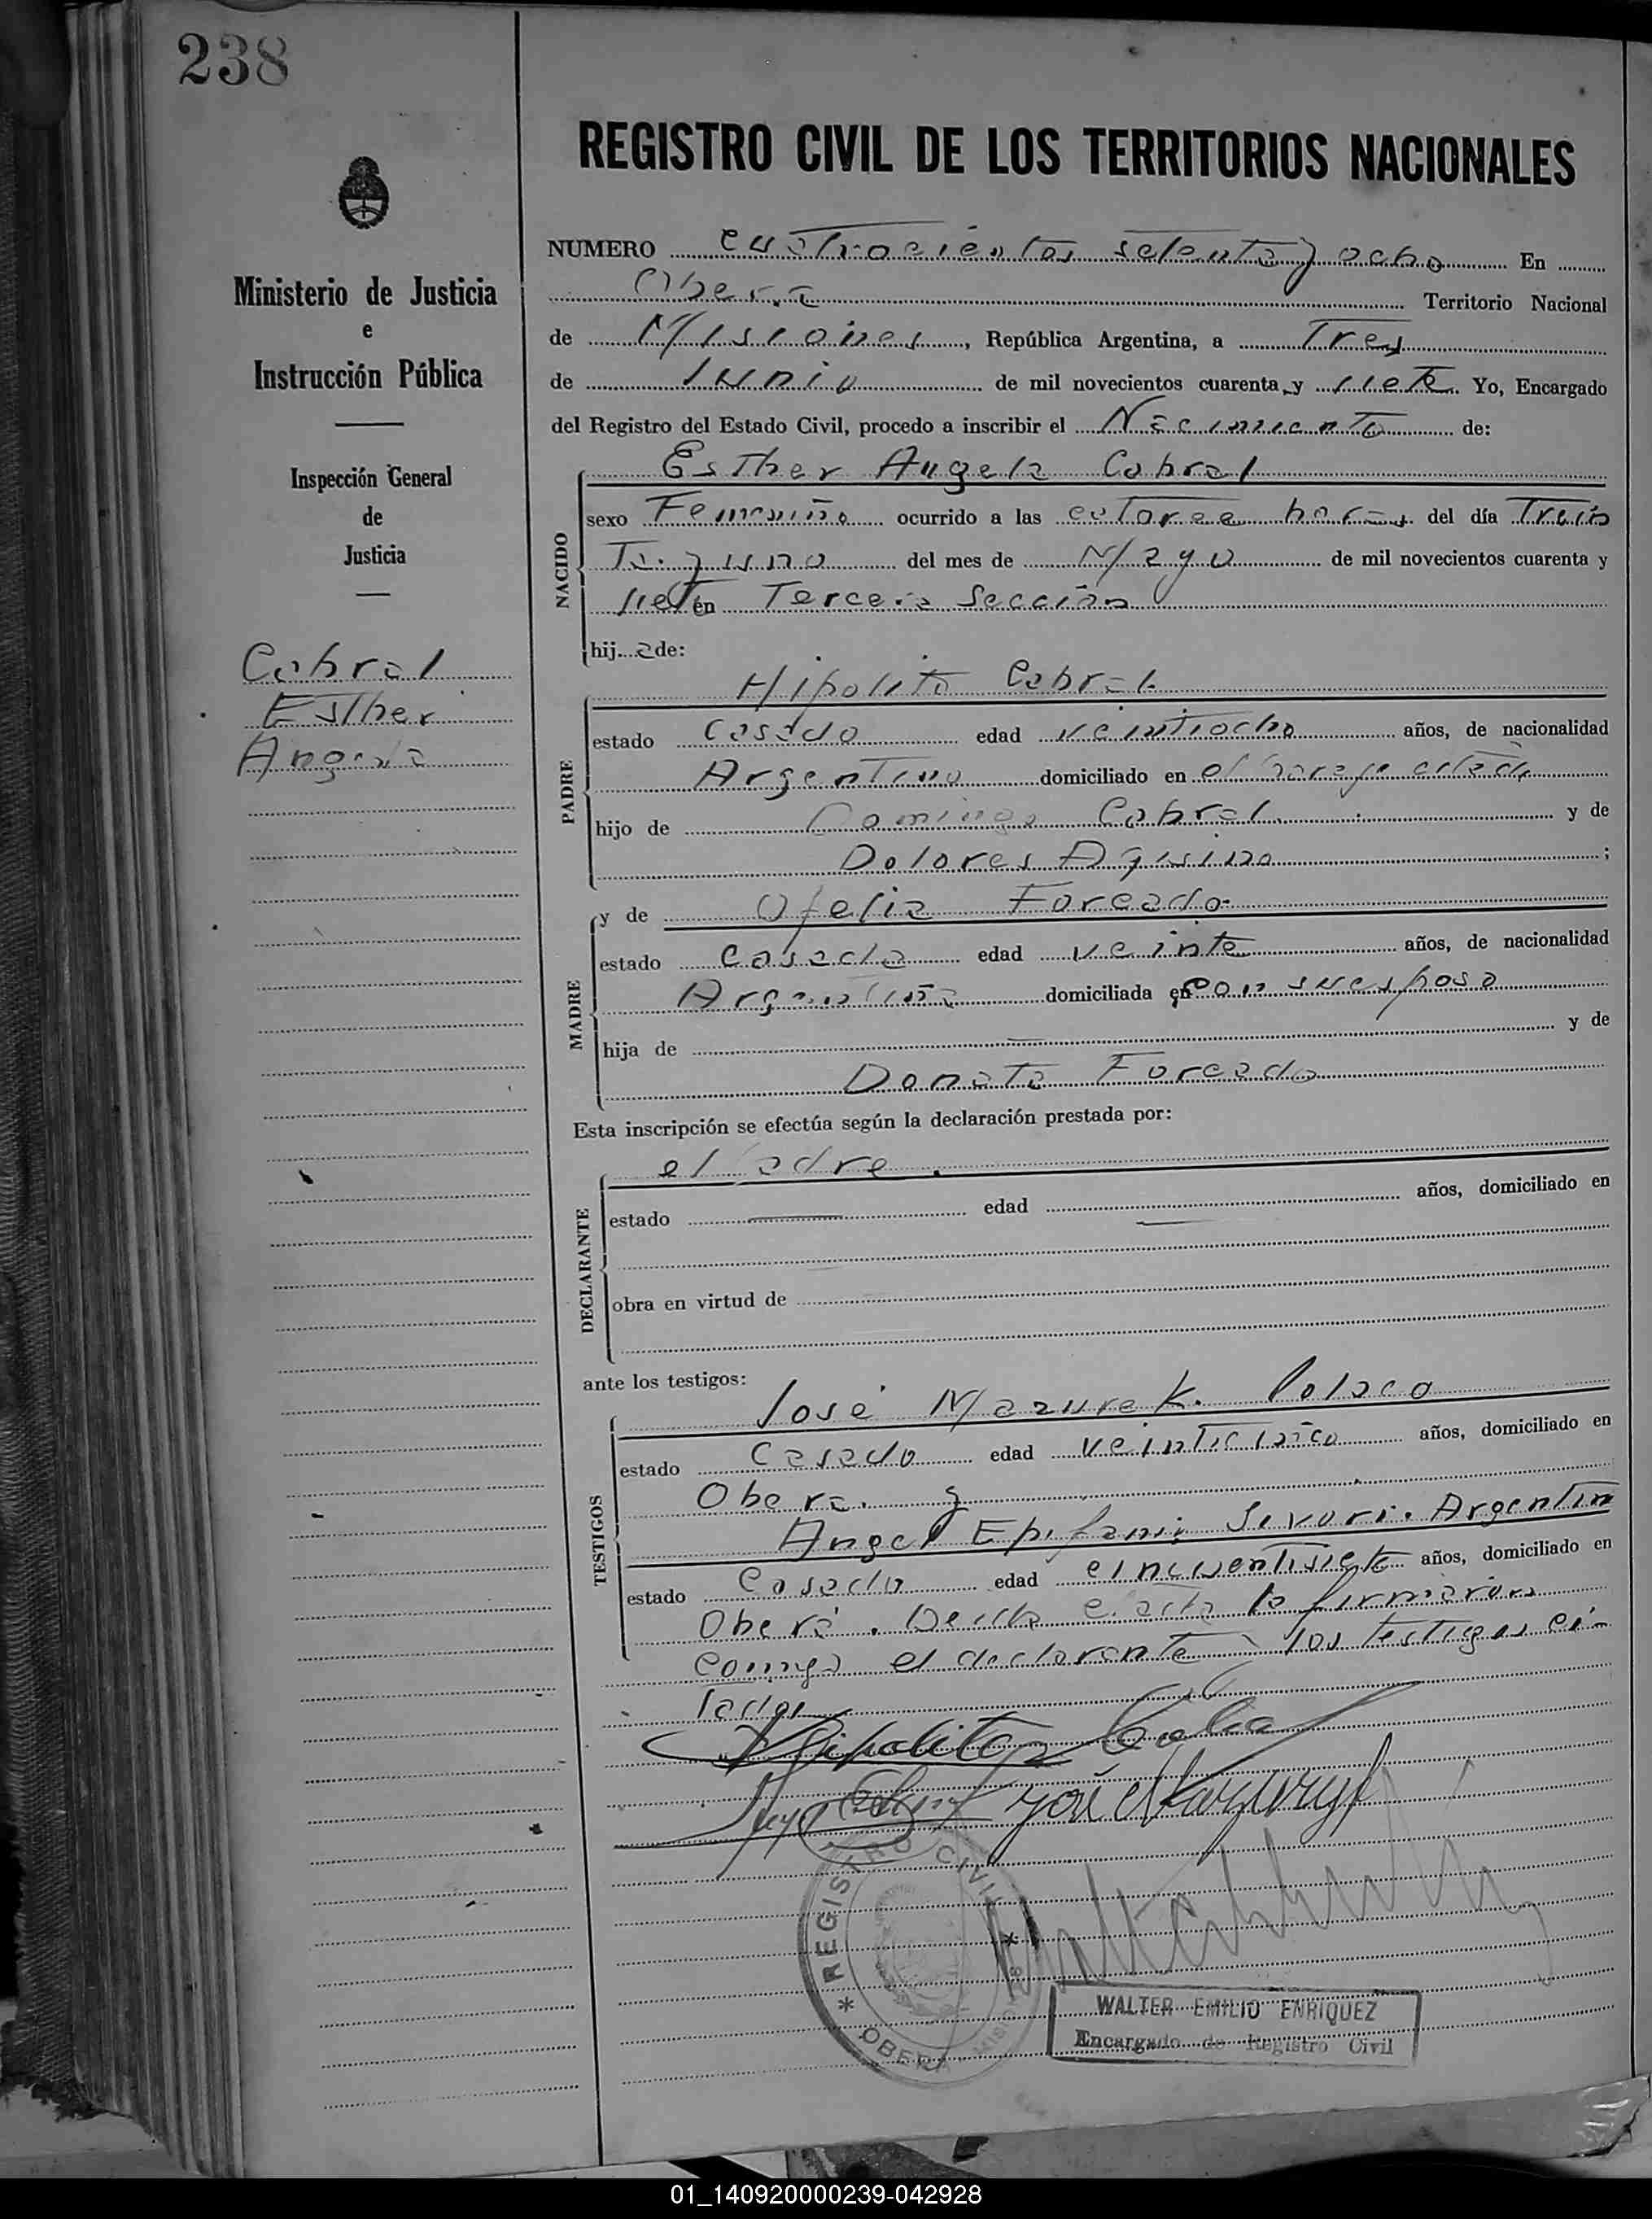 238
REGISTRO CIVIL DE LOS TERRITORIOS NACIONALES
Ministerio de Justicia
e
Instrucción Pública
Inspección General
de
Justicia
Cabral
Esther
Angela
NUMERO cuatrocientos setenta y ocho En
Oberá Territorio Nacional
de Misiones, República Argentina, a Tres
de Junio de mil novecientos cuarenta y siete. Yo, Encargado
del Registro del Estado Civil, procedo a inscribir el Nacimiento de:
NACIDO
Esther Angela Cabral
sexo Femenino ocurrido a las catorce horas del día Trein
ta y uno del mes de Mayo de mil novecientos cuarenta y
siete en Tercera Sección
hija de:
PADRE
Hipolito Cabral
estado casado edad veintiocho años, de nacionalidad
Argentino domiciliado en el paraje citado
hijo de Domingo Cabral y de
Dolores ;
MADRE
y de Ofelia Forcado
estado casada edad veinte años, de nacionalidad
Argentina domiciliada en con su esposo
hija de y de
Donata Forcado
Esta inscripción se efectúa según la declaración prestada por:
DECLARANTE
el padre.
estado edad años, domiciliado en
obra en virtud de
ante los testigos:
TESTIGOS
José Mazurek. Polaco
estado casado edad veinticinco años, domiciliado en
Oberá. y
Angel Epifanio Argentin
estado casado edad cincuentisiete años, domiciliado en
Oberá. Leida el acta la firmaron
conmigo el declarante y los testigos ci-
tados
Hipolito Cabral
José Mazuryk
* REGISTRO CIVIL *
OBERA
WALTER EMILIO ENRIQUEZ
Encargado de Registro Civil
01_140920000239-042928